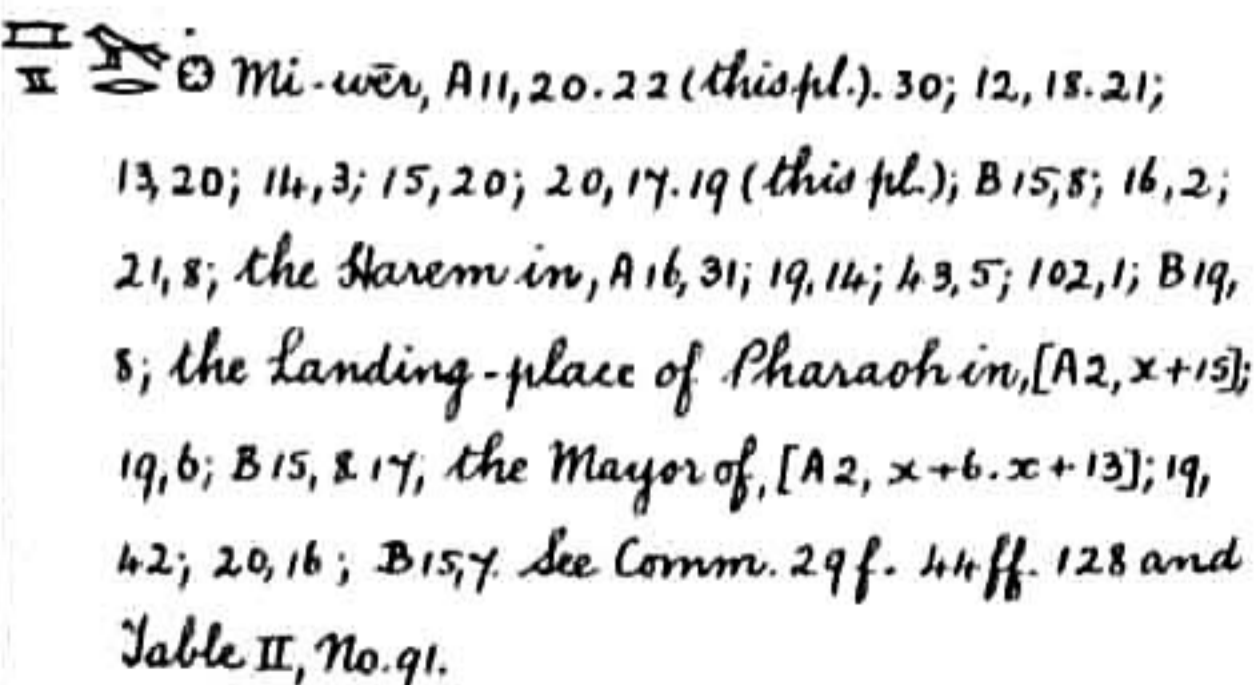 Mi-wēr, A11,20.22 (this pl.). 30; 12, 18.21;
13,20; 14,3; 15,20; 20, 17.19 (this pl.); B15,8; 16,2;
21,8; the Harem in, A16,31; 19,14; 43,5; 102,1; B19,
8; the Landing-place of Pharaoh in,[A2, x+15];
19,6; B15, 8.17; the Mayor of, [A2, x+6.x+13]; 19,
42; 20,16; B15,7. See Comm. 29f. 44ff. 128 and
Table II, No.91.